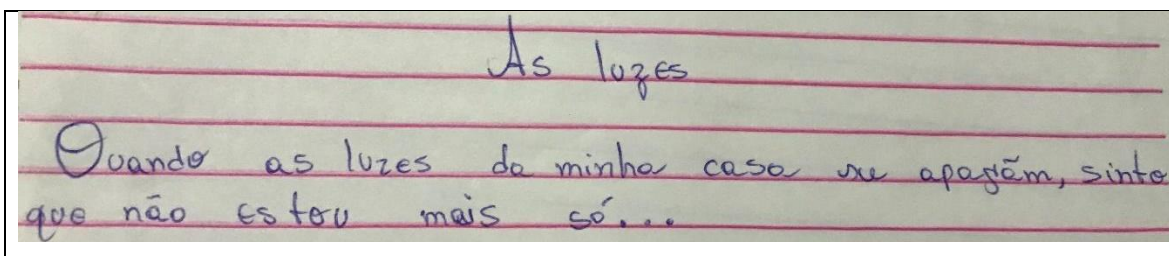 As luzes
Quando as luzes da minha casa se apagãm, sinto
que não estou mais só...